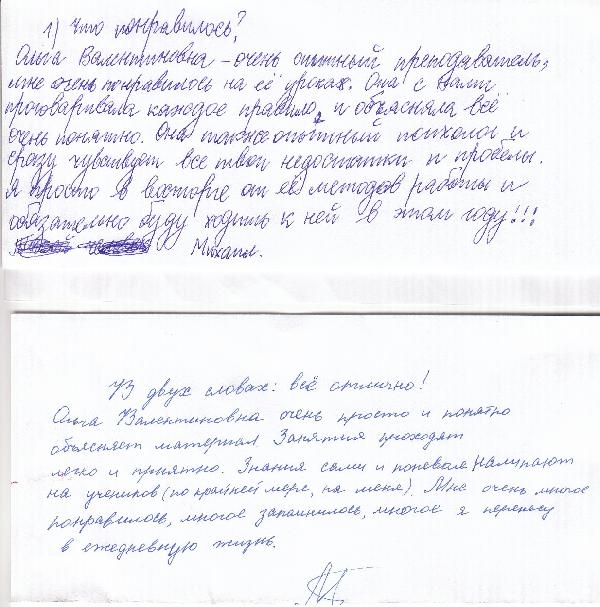 1) Что понравилось?
Ольга Валентиновна - очень опытный преподаватель,
мне очень понравилось на её уроках. Она с нами
проговаривала каждое правило, и объясняла всё
очень понятно. Она также опытный психолог и
сразу чувствует все твои недостатки и пробелы.
Я просто в восторге от её методов работы и
обязательно буду ходить к ней в этом году!!!
Михаил.
В двух словах: всё отлично!
Ольга Валентиновна очень просто и понятно
объясняет материал. Занятия проходят
легко и приятно. Знания сами и поневоле налипают
на учеников (по крайней мере, на меня). Мне очень многое
понравилось, многое запомнилось, многое я переношу
в ежедневную жизнь.